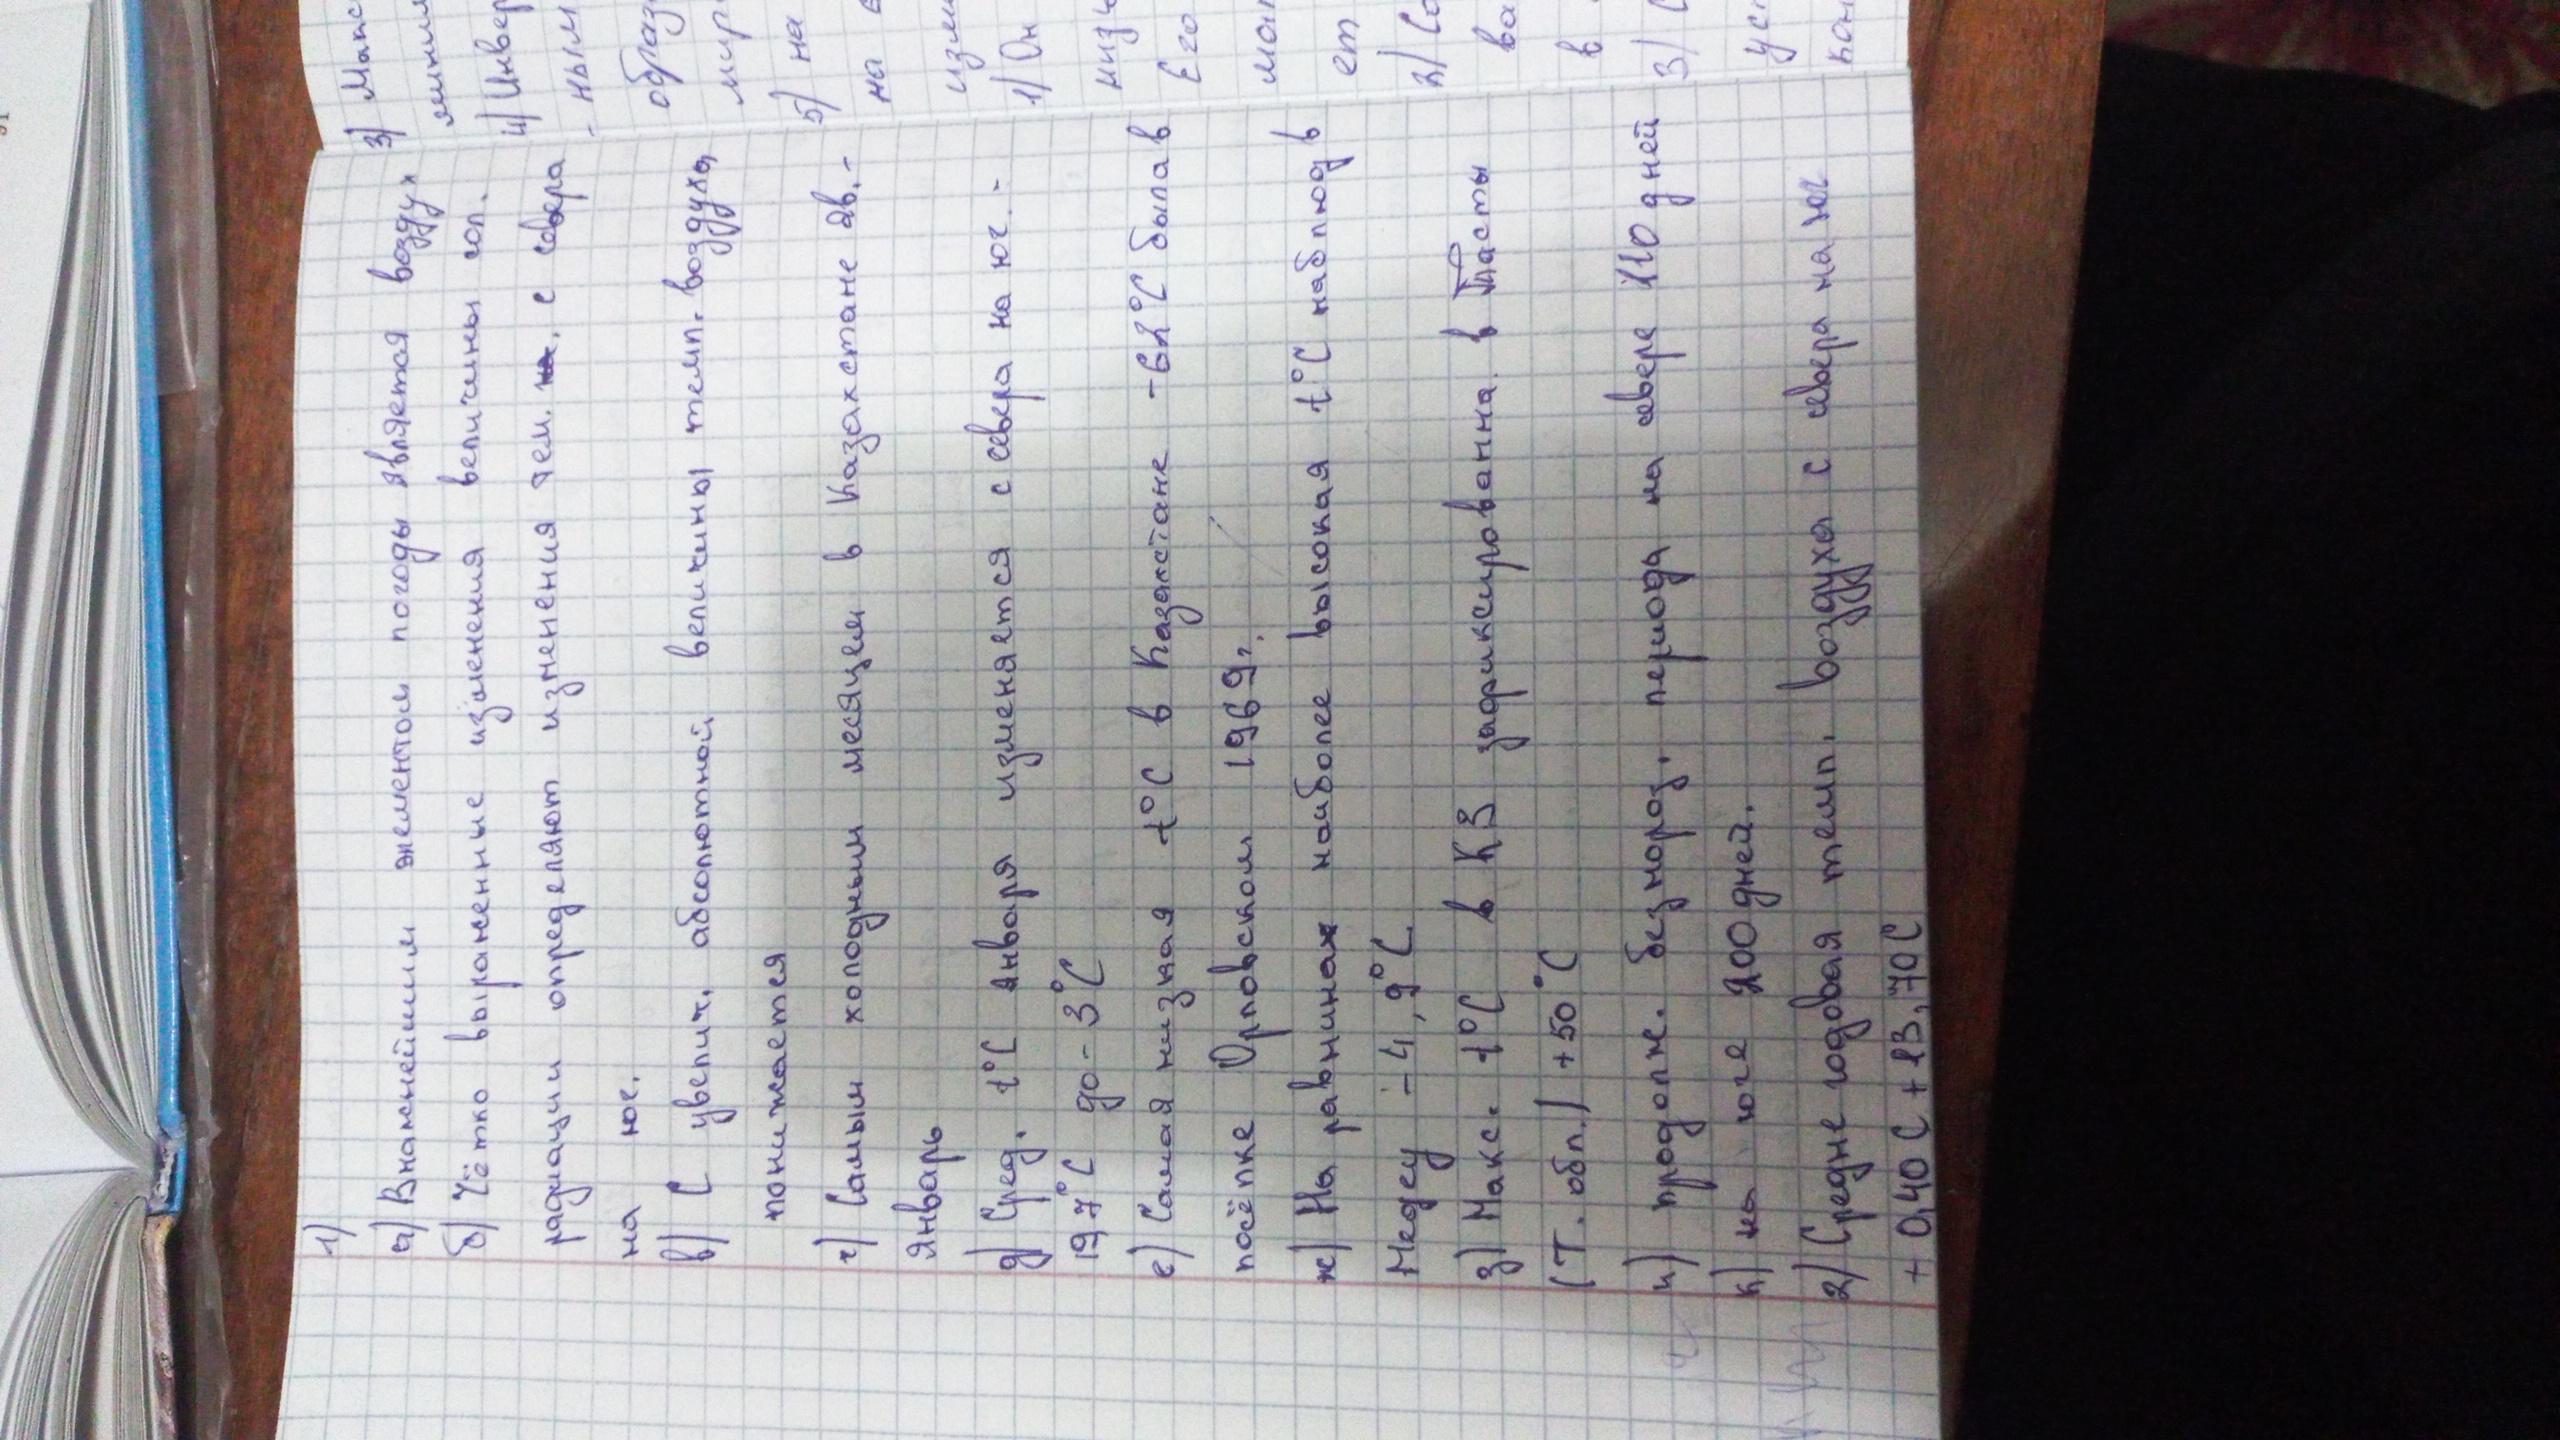 1)
а) Внажнейшим элементом погоды является воздух
б) Чётко выраженные изменения величины сол.
радиации определяют изменения тем. с севера
на юг.
в) С увелич. абсолютной величины темп. воздуха
понижается
г) Самым холодным месяцем в Казахстане яв. -
январь
д) Сред. t°C Января изменяется с севера на юг. -
19,7°C до - 3°C
е) Самая низкая t°C в Казакстане -62°C была в
посёлке Орловском 1969г.
ж) На равнинах наиболее высокая t°C наблюд в
Медеу -4,9°C.
з) Макс. t°C в КЗ зафиксированна. в Тасты
(Т. обл.) +50°C
и) продолж. безмороз. периода на севере 110 дней
к) на юге 200 дней.
2) Средне годовая темп. воздуха с севера на юг
+ 0,40 C + 13,70 C
3)
4) Инвер
- ным
5) на
на
1) Он
низ
Его
ет
2) Со
ва
в
3) С